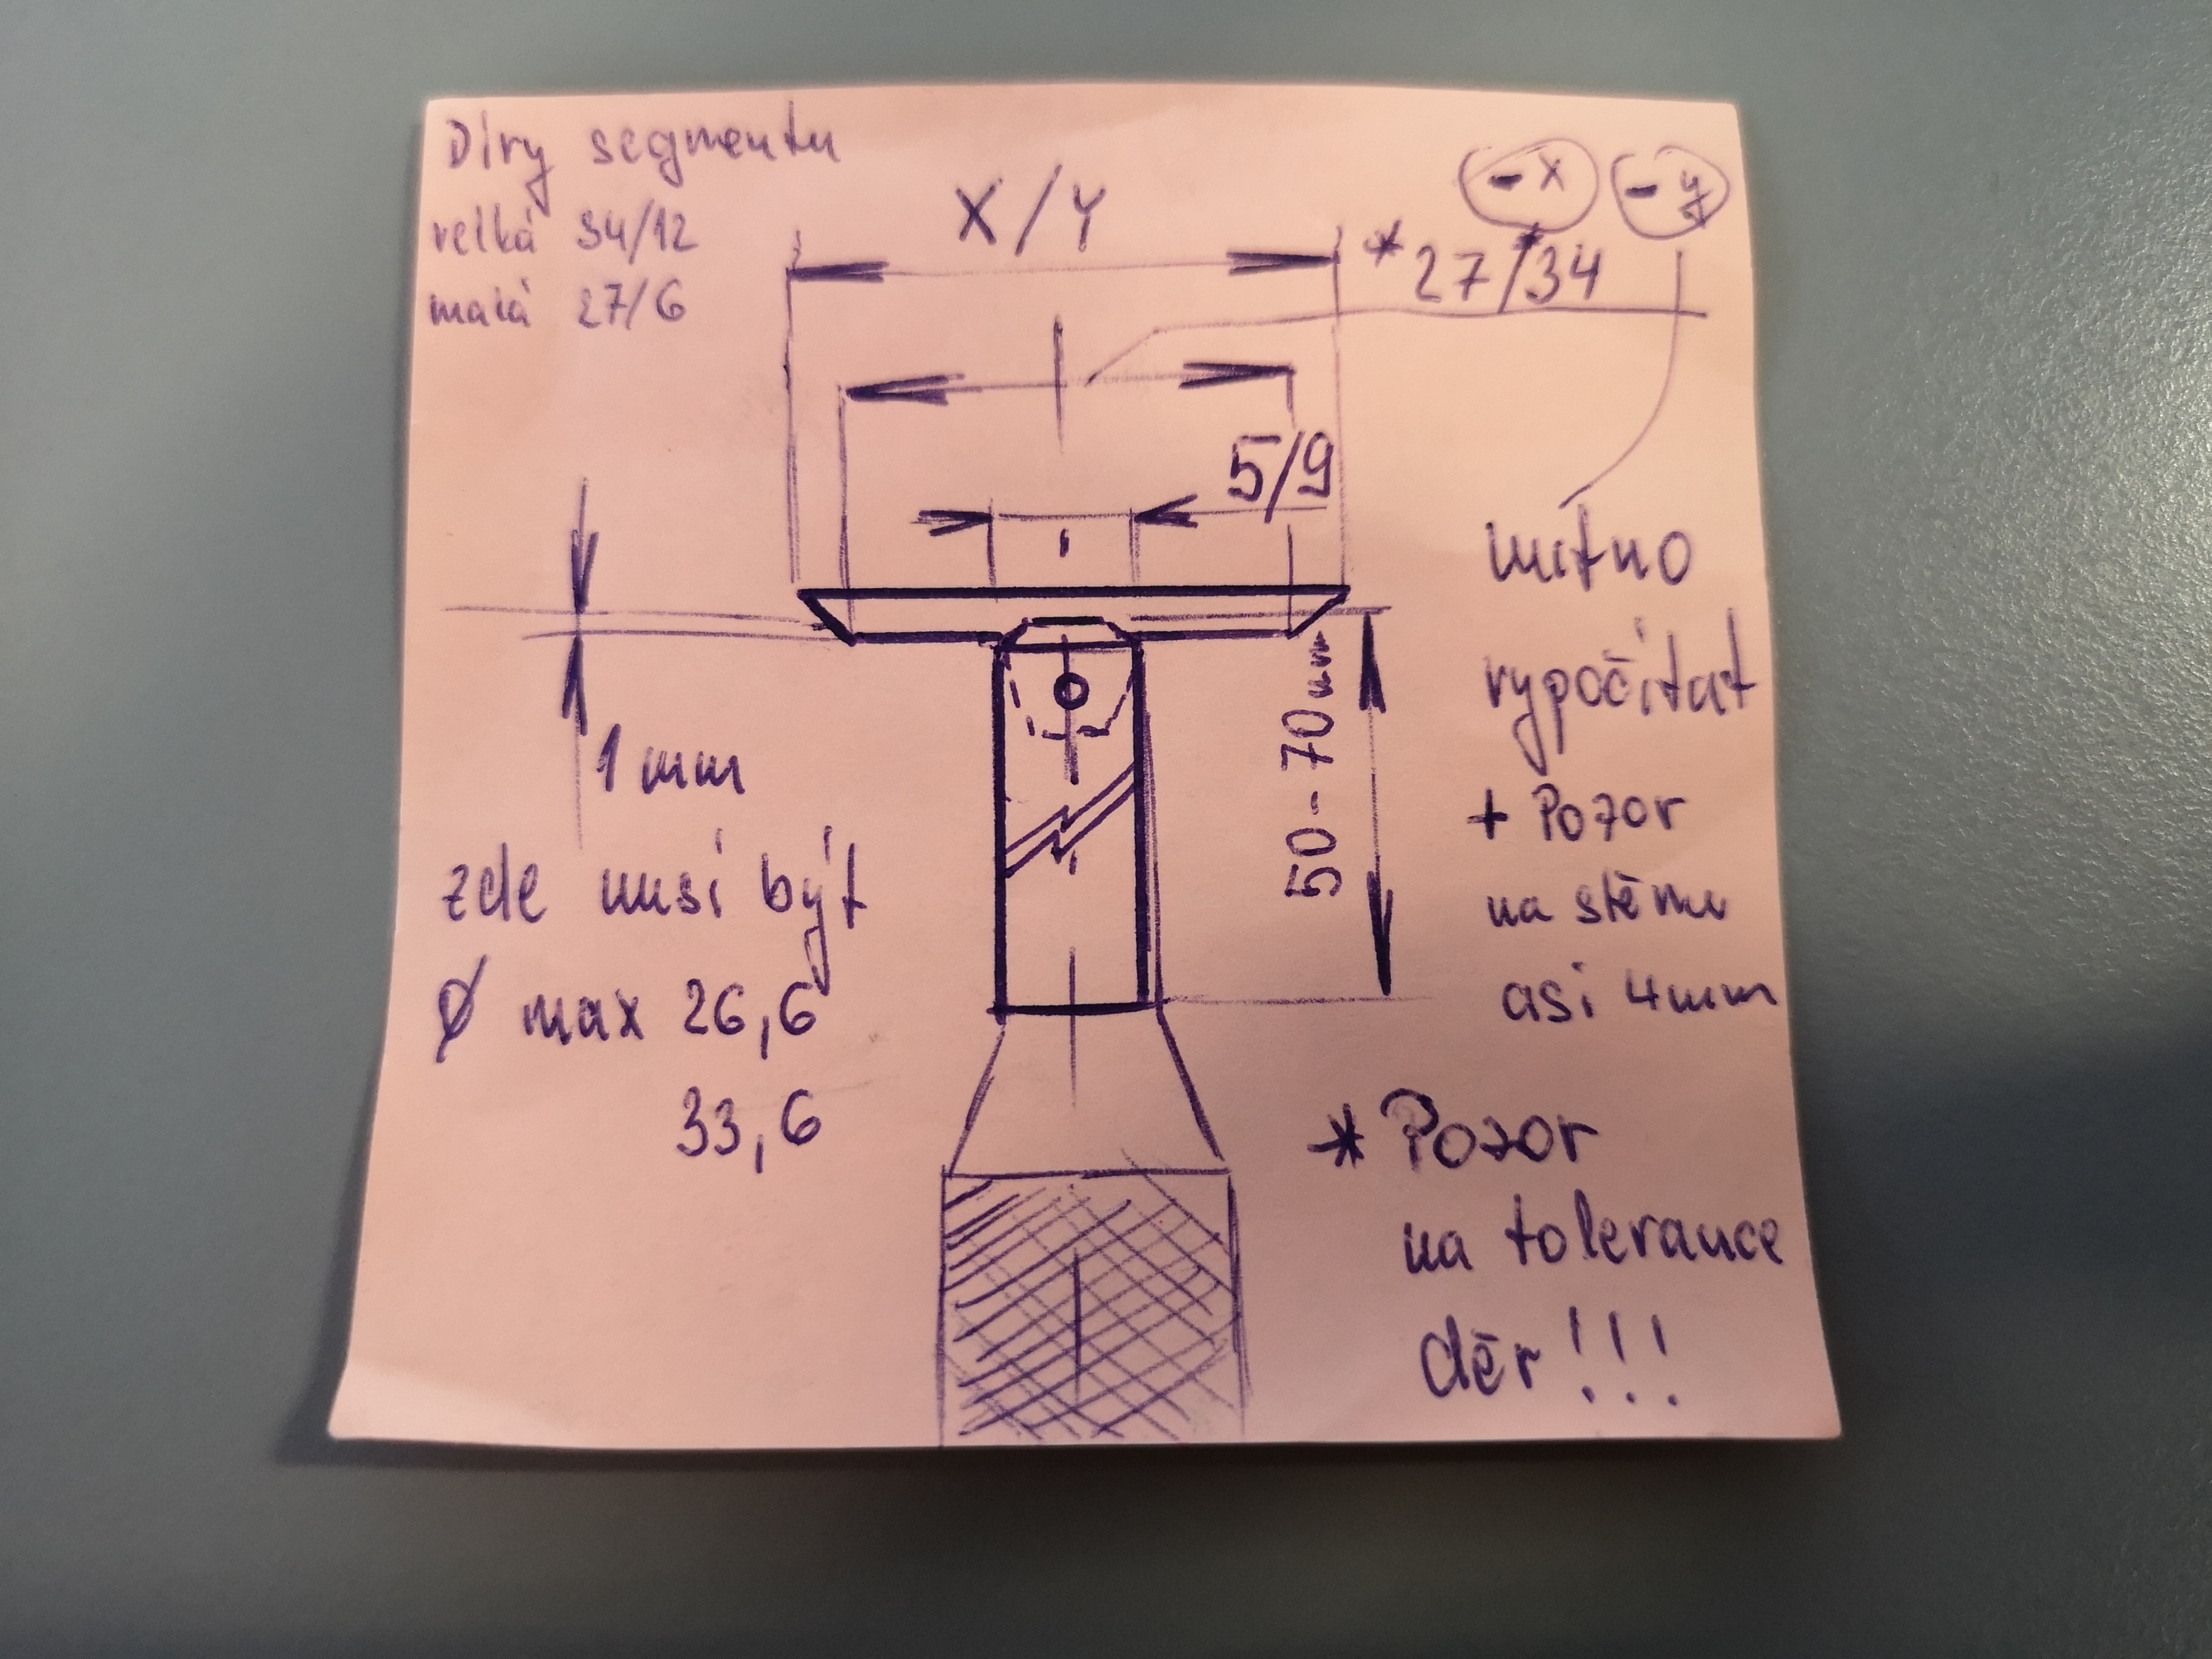 Díry segmentu
velká 34/12
malá 27/6
X/Y
-x -y
*27/*34
5/9
1mm
zde musí být
Ø max 26,6
33,6
50-70mm
nutno
vypočítat
+ Pozor
na stěnu
asi 4mm
* Pozor
na tolerance
děr!!!